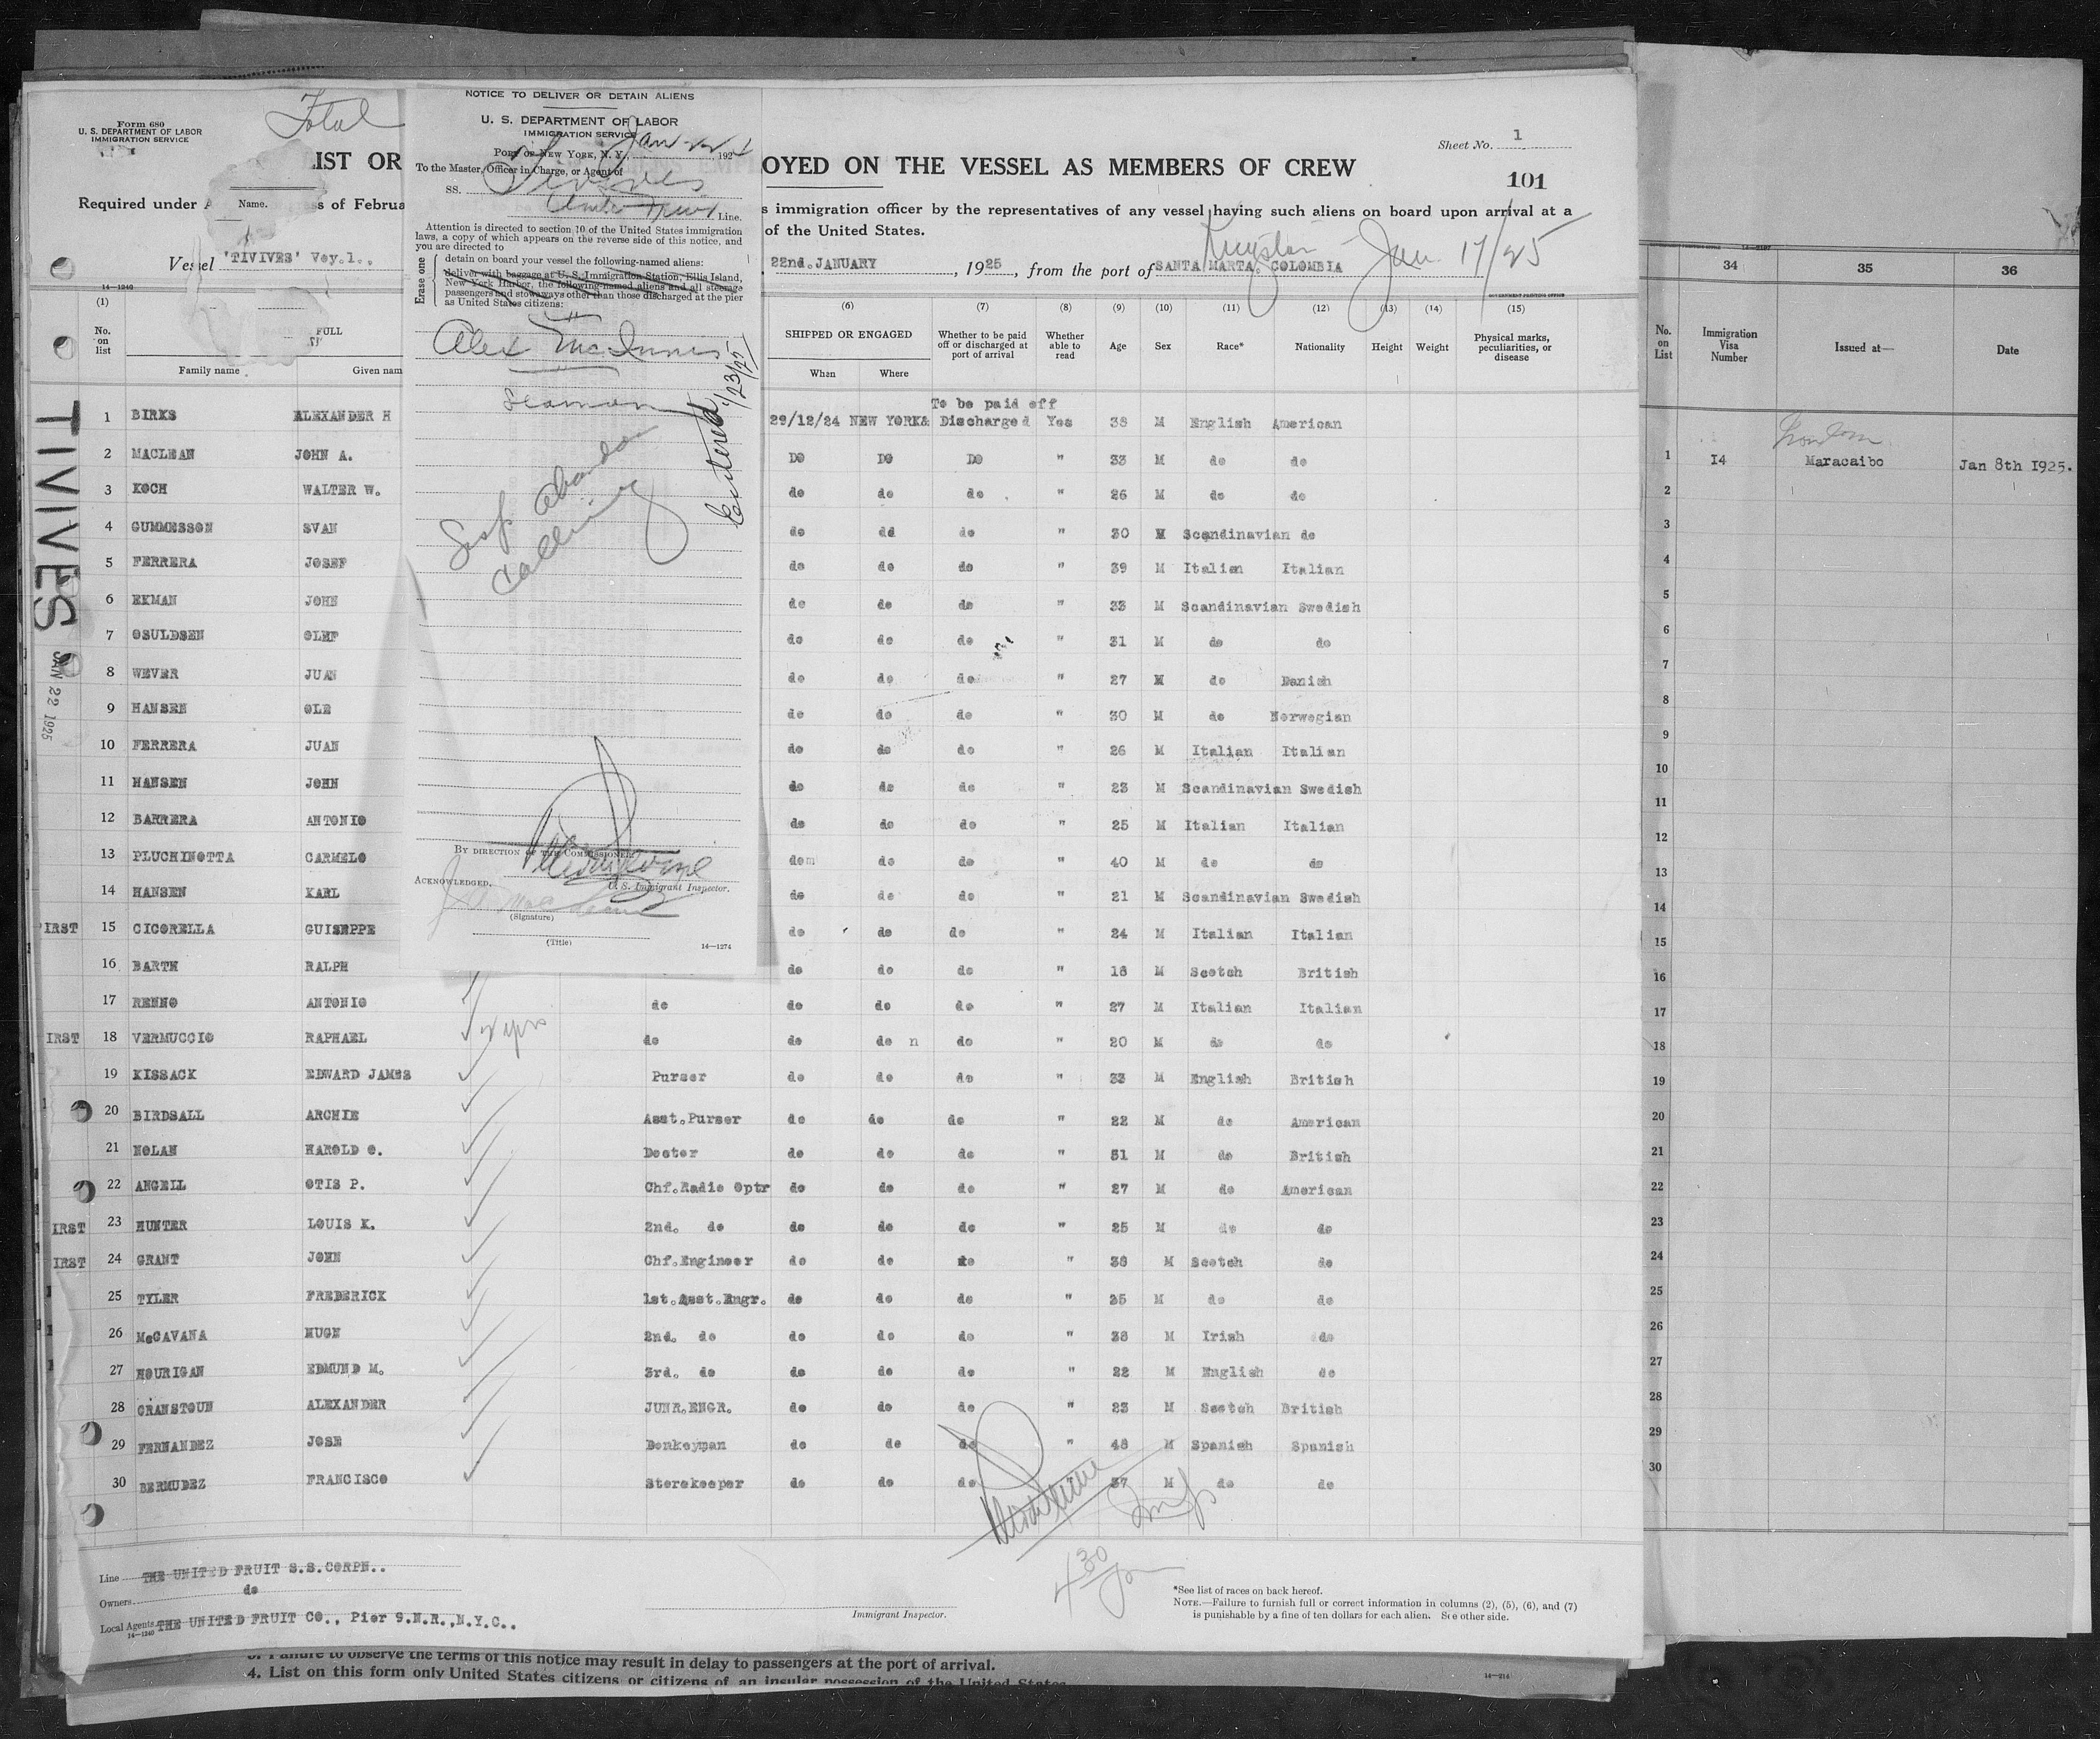 Form 680
U. S. DEPARTMENT OF LABOR
IMMIGRATION SERVICE
Total
LIST OR
OYED ON THE VESSEL AS MEMBERS OF CREW
Sheet No. 1
101
Required under A
ss of Februa
s immigration officer by the representatives of any vessel having such aliens on board upon arrival at a
of the United States.
Name.
Vessel 'TIVIVES' Voy.1.,
22nd.JANUARY, 1925, from the port of SANTA MARTA, COLOMBIA
Kingston Jan 17/25
14—1240
GOVERNMENT PRINTING OFFICE
NOTICE TO DELIVER OR DETAIN ALIENS
U. S. DEPARTMENT OF LABOR
IMMIGRATION SERVICE
PORT OF NEW YORK, N. Y., Jan 22, 192
To the Master, Officer in Charge, or Agent of
SS. Tivives
United Fruit Line.
Attention is directed to section 10 of the United States immigration
laws, a copy of which appears on the reverse side of this notice, and
you are directed to
Erase one
detain on board your vessel the following-named aliens:
deliver with baggage at U. S. Immigration Station, Ellis Island,
New York Harbor, the following-named aliens and all steerage
passengers and stowaways other than those discharged at the pier
as United States citizens:
Alex McInnes
Seaman
Susp abandon
calling
Entered 1/23/25
BY DIRECTION OF THE COMMISSIONER
U. S. Immigrant Inspector.
ACKNOWLEDGED,
(Signature)
(Title)
14—1274
(1) (6) (7) (8) (9) (10) (11) (12) (13) (14) (15)
No. on list
FULL
Family name
Given nam
SHIPPED OR ENGAGED
When
Where
Whether to be paid off or discharged at port of arrival
Whether able to read
Age
Sex
Race*
Nationality
Height
Weight
Physical marks, peculiarities, or disease
TIVIVES
JAN 22 1925
To be paid off
1 BIRKS ALEXANDER H 29/12/24 NEW YORK & Discharged Yes 38 M English American
2 MACLEAN JOHN A. DO DO DO " 33 M do do
3 KOCH WALTER W. do do do " 26 M do do
4 GUMMESSON SVAN do dd do " 30 M Scandinavian do
5 FERRERA JOSEF do do do " 39 M Italian Italian
6 EKMAN JOHN do do do " 33 M Scandinavian Swedish
7 OSULDSEN OLEF do do do " 31 M do do
8 WEVER JUAN do do do " 27 M do Danish
9 HANSEN OLE do do do " 30 M do Norwegian
10 FERRERA JUAN do do do " 26 M Italian Italian
11 HANSEN JOHN do do do " 23 M Scandinavian Swedish
12 BARRERA ANTONIO do do do " 25 M Italian Italian
13 PLUCHINOTTA CARMELO dom do do " 40 M do do
14 HANSEN KARL do do do " 21 M Scandinavian Swedish
IRST 15 CICORELLA GUISEPPE do do do " 24 M Italian Italian
16 BARTH RALPH do do do " 18 M Scotch British
17 RENNO ANTONIO do do do do " 27 M Italian Italian
IRST 18 VERMUCCIO RAPHAEL 2 yrs do do do n do " 20 M do do
19 KISSACK EDWARD JAMES Purser do do do " 33 M English British
20 BIRDSALL ARCHIE Asst.Purser do do do " 22 M do American
21 NOLAN HAROLD O. Doctor do do do " 51 M do British
22 ANGELL OTIS P. Chf.Radio Optr do do do " 27 M do American
IRST 23 HUNTER LOUIS K. 2nd. do do do do " 25 M do do
IRST 24 GRANT JOHN Chf.Engineer do do do " 38 M Scotch do
25 TYLER FREDERICK 1st.Asst.Engr. do do do " 25 M do do
26 McCAVANA HUGH 2nd. do do do do " 38 M Irish do
27 HOURIGAN EDMUND M. 3rd. do do do do " 22 M English do
28 CRANSTOUN ALEXANDER JUNR.ENGR. do do do " 23 M Scotch British
29 FERNANDEZ JOSE Donkeyman do do do " 48 M Spanish Spanish
30 BERMUDEZ FRANCISCO Storekeeper do do do 37 M do do
Insp
4 30
Line THE UNITED FRUIT S.S.CORPN..
Owners do
Local Agents THE UNITED FRUIT CO., Pier 9.N.R.,N.Y.C..
14—1240
Immigrant Inspector.
*See list of races on back hereof.
NOTE.—Failure to furnish full or correct information in columns (2), (5), (6), and (7)
is punishable by a fine of ten dollars for each alien. See other side.
3. Failure to observe the terms of this notice may result in delay to passengers at the port of arrival.
4. List on this form only United States citizens or citizens of an insular possession of the United States
14—214
34 35 36
No. on List
Immigration Visa Number
Issued at—
Date
1 14 Maracaibo Jan 8th 1925.
2
3
4
5
6
7
8
9
10
11
12
13
14
15
16
17
18
19
20
21
22
23
24
25
26
27
28
29
30